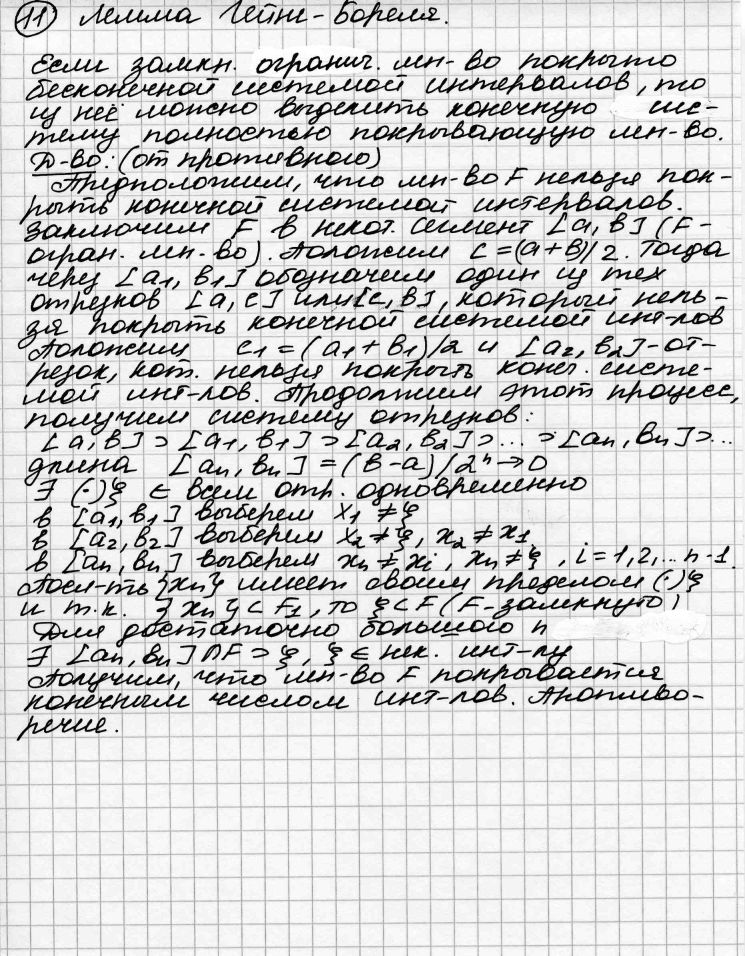 11 Лемма Гейне-Бореля.
Если замкн. огранич. мн-во покрыто
бесконечной системой интервалов, то
из неё можно выделить конечную сис-
тему полностью покрывающую мн-во.
Д-во: (от противного)
Предположим, что мн-во F нельзя пок-
рыть конечной системой интервалов.
Заключим F в некот. сегмент [a, в] (F-
огран. мн-во). Положим c=(a+в)/2. Тогда
через [a₁, в₁] обозначим один из тех
отрезков [a, c] или [c, в], который нель-
зя покрыть конечной системой инт-лов
Положим c₁=(a₁+в₁)/2 и [a₂, в₂]-от-
резок, кот. нельзя покрыть конеч. систе-
мой инт-лов. Продолжим этот процесс,
получим систему отрезков:
[a, в] ⊃ [a₁, в₁] ⊃ [a₂, в₂] ⊃ ... ⊃ [aₙ, вₙ] ⊃ ...
длина [aₙ, вₙ] = (в-a)/2ⁿ → 0
∃ (·)ξ ∈ всем отр. одновременно
в [a₁, в₁] выберем x₁ ≠ ξ
в [a₂, в₂] выберем x₂ ≠ ξ, x₂ ≠ x₁
в [aₙ, вₙ] выберем xₙ ≠ xᵢ, xₙ ≠ ξ, i=1,2,... n-1.
Посл-ть {xₙ} имеет своим пределом (·)ξ
и т.к. {xₙ} ⊂ F₁, то ξ ⊂ F (F-замкнуто)
Для достаточно большого n
∃ [aₙ, вₙ] ∩ F ∋ ξ, ξ ∈ нек. инт-лу
Получим, что мн-во F покрывается
конечным числом инт-лов. Противо-
речие.